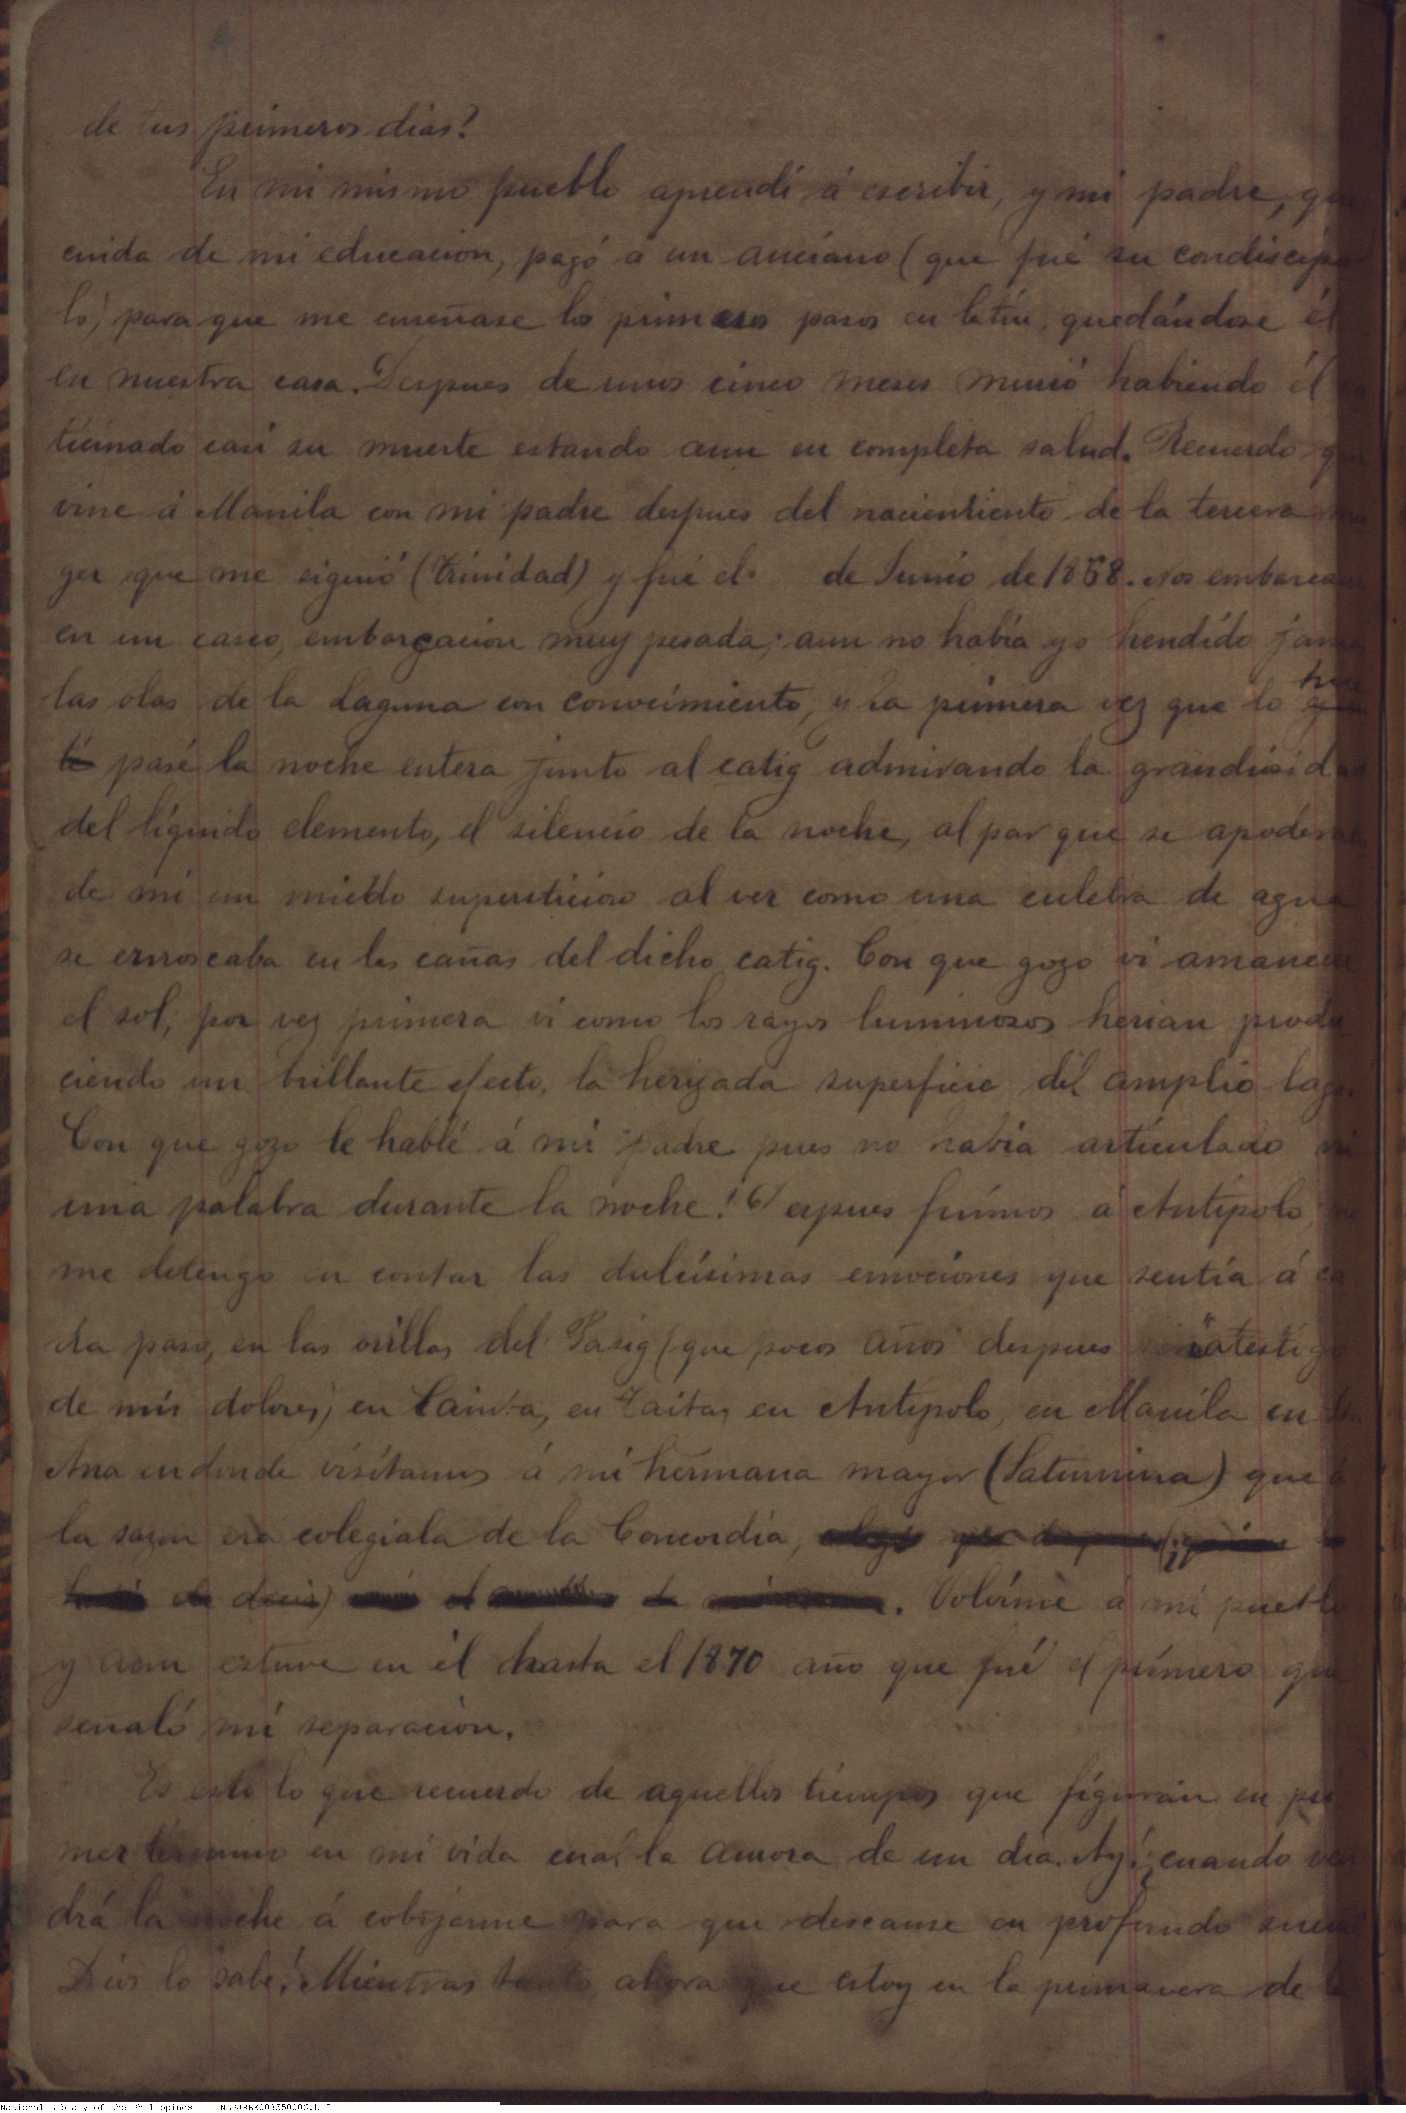 de tus primeros dias?
En mi mismo pueblo aprendí á escribir, y mi padre, que
cuida de mi educacion, pagó á un anciano (que fué su condiscípu
lo) para que me enseñase los primeros pasos en latin, quedándose él
en nuestra casa. Despues de unos cinco meses murió habiendo él
ticinado casi su muerte estando aun en completa salud. Recuerdo que
vine á Manila con mi padre despues del nacientiento de la tercera
ger que me siguió (Trinidad) y fué el de Junio de 1868. Nos embarcam
en un casco, embarcacion muy pesada; aun no había yo hendido jamas
las olas de la Laguna con conocimiento, y la primera vez que lo hice
pasé la noche entera junto al catig admirando la grandiosidad
del líquido elemento, el silencio de la noche, al par que se apodera
de mi un miedo supersticioso al ver como una culebra de agua
se enroscaba en las cañas del dicho catig. Con que gozo vi amanecer
el sol; por vez primera vi como los rayos luminosos herian produ
ciendo un brillante efecto, la herizada superficie del amplio lago.
Con que gozo le hablé á mi padre pues no habia articulado ni
una palabra durante la noche! Despues fuimos á Antipolo
me detengo en contar las dulcísimas emociones que sentía á ca
da paso, en las orillas del Pasig (que pocos años despues testigo
de mis dolores) en Cainta, en Taitay en Antipolo, en Manila en Sta
Ana en donde visitamos á mi hermana mayor (Saturnina) que á
la sazon era colegiala de la Concordia,
de decir) . Volvíme á mi pueblo
y aun estuve en él hasta el 1870 año que fué el primero que
señaló mi separacion.
Es esto lo que recuerdo de aquellos tiempos que figuran en pri
mer término en mi vida cual la aurora de un dia. Ay! ¿cuando ven
drá la noche á cobijarme para que descanse en profundo sueño
Dios lo sabe! Mientras tanto, ahora que estoy en la primavera de la
National Library of the Philippines